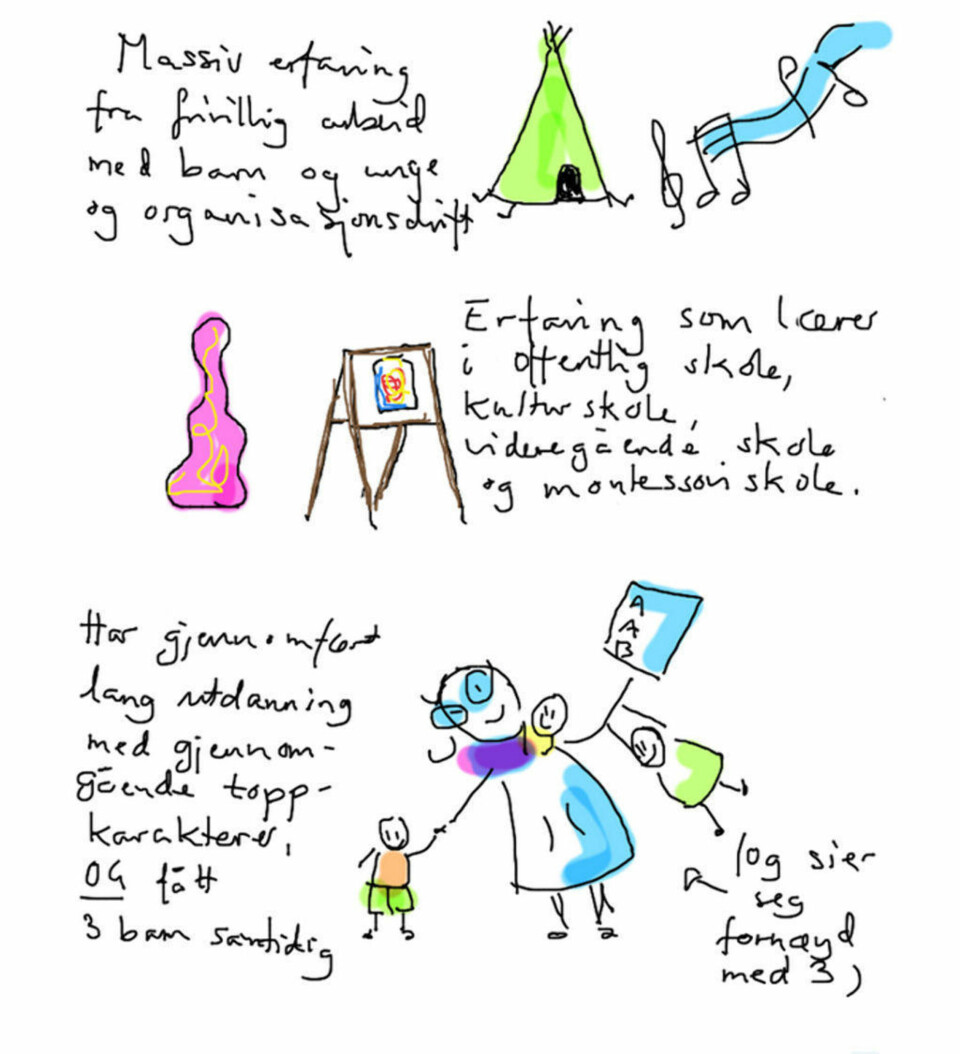 Massiv erfaring
fra frivillig arbeid
med barn og unge
og organisasjonsdrift
Erfaring som lærer
i offentlig skole,
kulturskole,
videregående skole
og montessoriskole.
Har gjennomført
lang utdanning
med gjennom-
gående topp-
karakterer,
OG fått
3 barn samtidig
A
A
B
(og sier
seg
fornøyd
med 3)